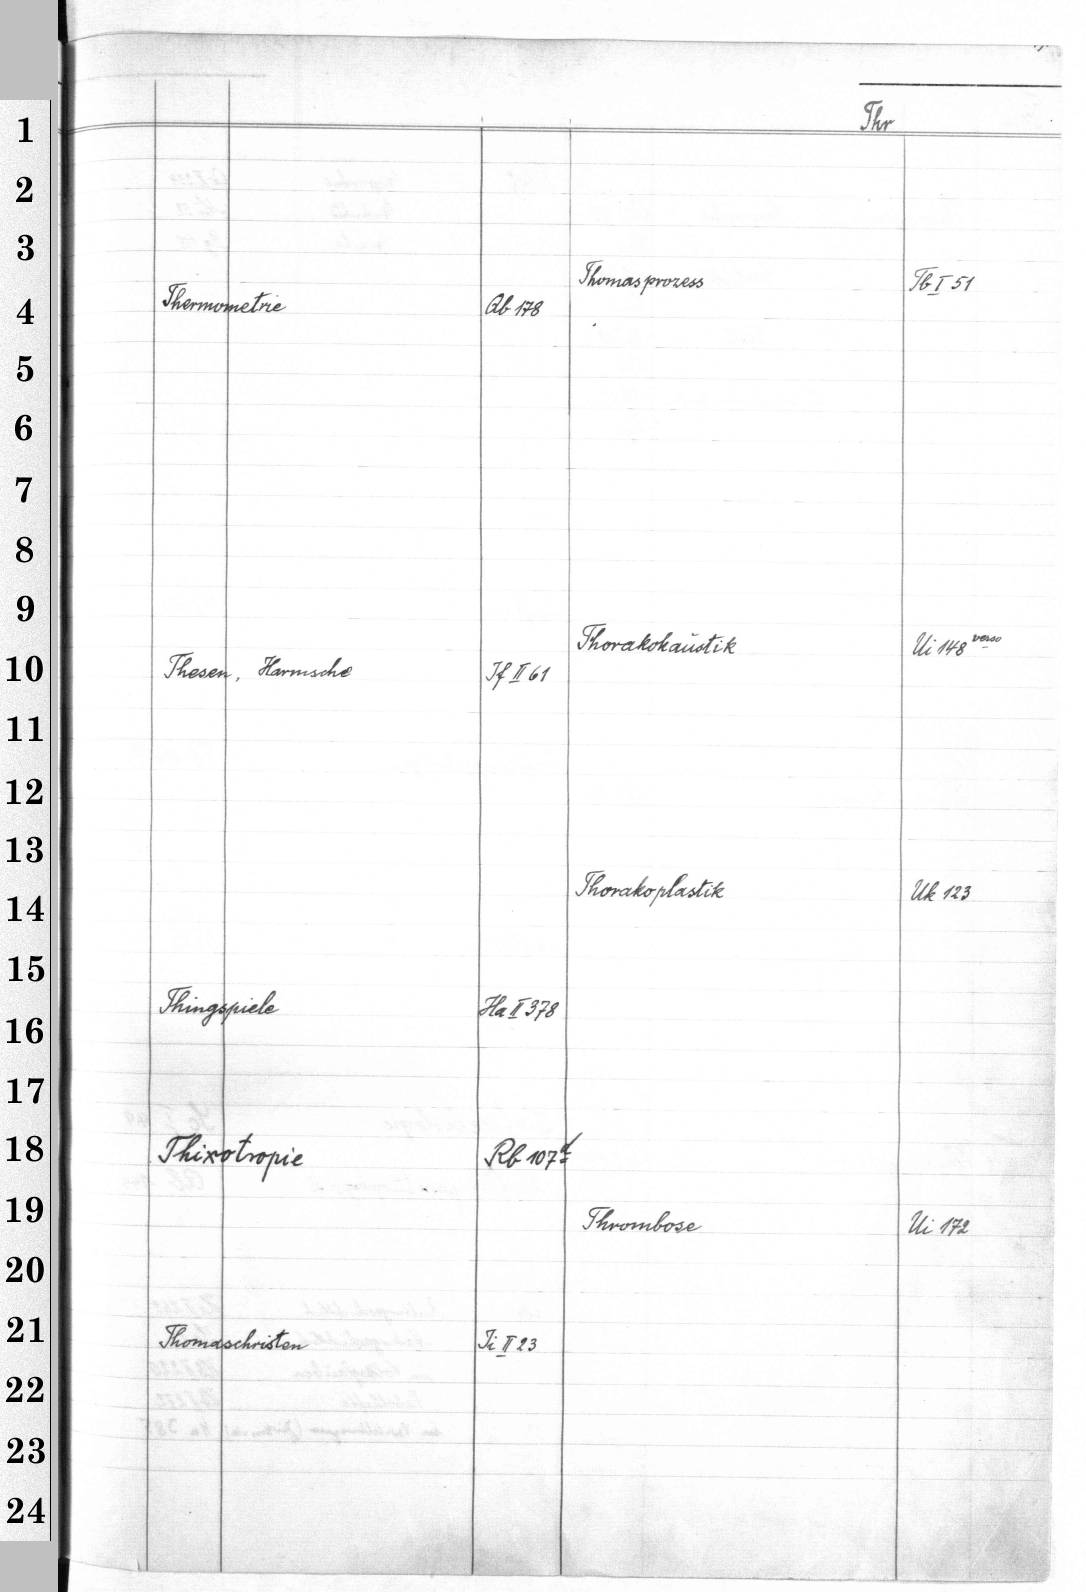 Thr
Thermometrie Qb 178
Thesen, Harmsche If II 61
Thingspiele Ha II 378
Thixotropie Rb 107
Thomaschristen Ii II 23
Thomasprozess Tb I 51
Thorakokaustik Ui 148 verso
Thorakoplastik Uk 123
Thrombose Ui 172
1
2
3
4
5
6
7
8
9
10
11
12
13
14
15
16
17
18
19
20
21
22
23
24